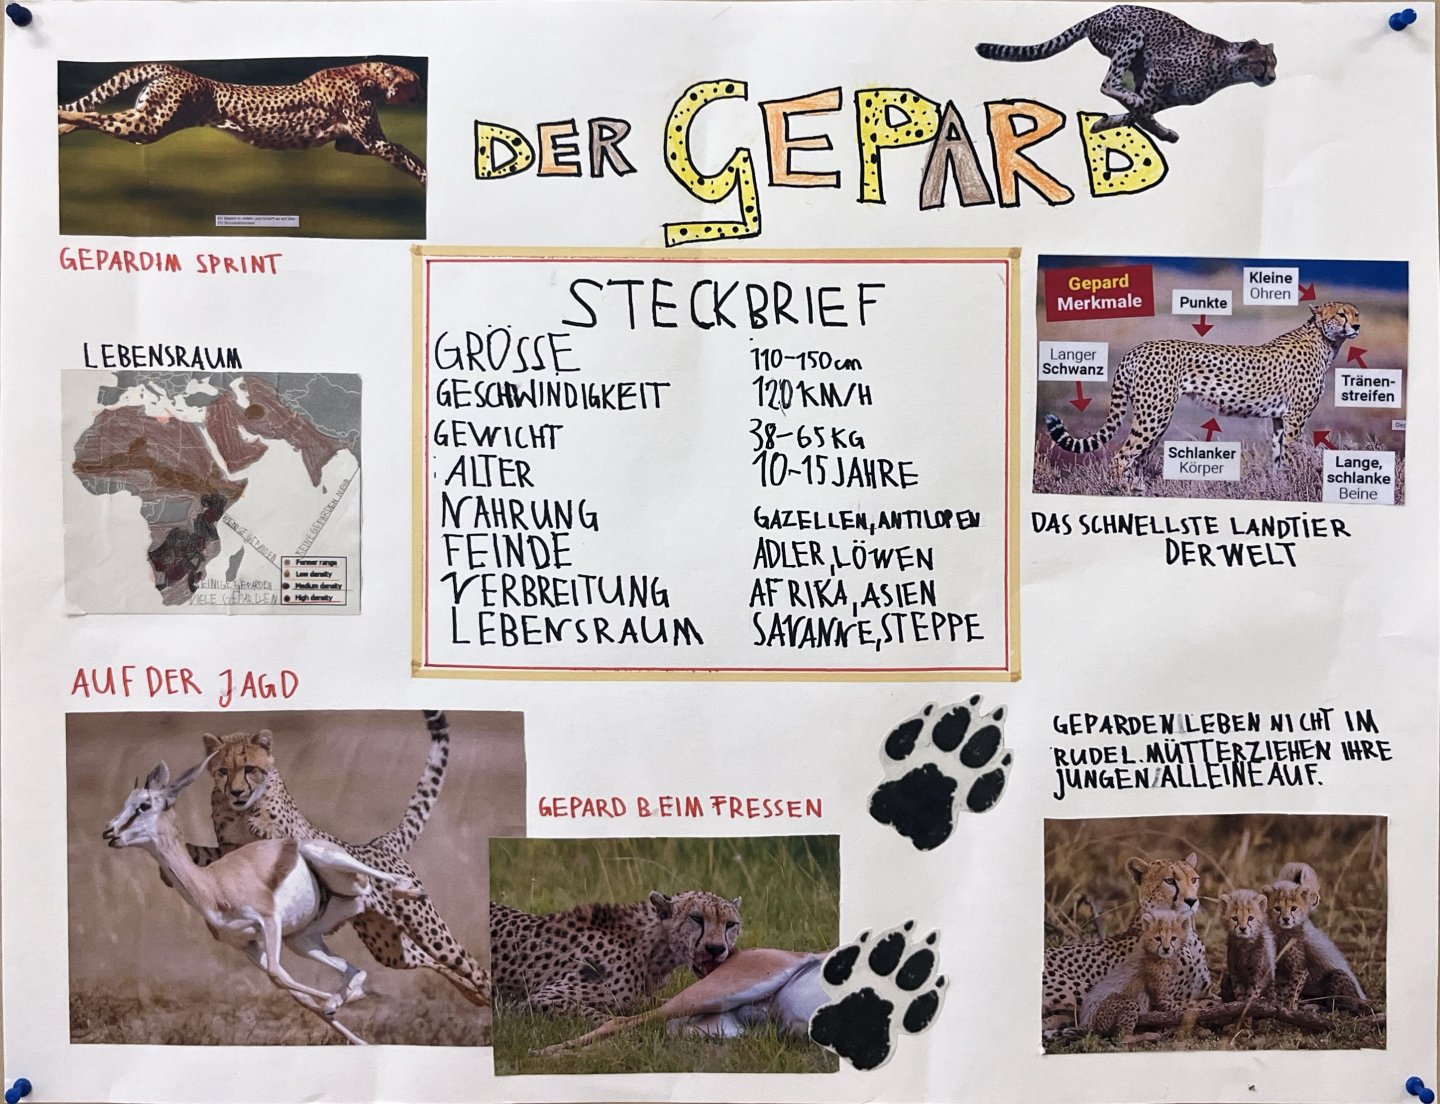 DER GEPARD
GEPARD IM SPRINT
STECKBRIEF
GRÖSSE 110-150cm
GESCHWINDIGKEIT 120 KM/H
GEWICHT 38-65 KG
ALTER 10-15 JAHRE
NAHRUNG GAZELLEN, ANTILOPEN
FEINDE ADLER, LÖWEN
VERBREITUNG AFRIKA, ASIEN
LEBENSRAUM SAVANNE, STEPPE
Gepard
Merkmale
Punkte
Kleine
Ohren
Langer
Schwanz
Tränen-
streifen
Schlanker
Körper
Lange,
schlanke
Beine
DAS SCHNELLSTE LANDTIER
DER WELT
LEBENSRAUM
WENIGE GEPARDEN
KEINE GEPARDEN MEHR
EINIGE GEPARDEN
VIELE GEPARDEN
Former range
Low density
Medium density
High density
AUF DER JAGD
GEPARD BEIM FRESSEN
GEPARDEN LEBEN NICHT IM
RUDEL. MÜTTER ZIEHEN IHRE
JUNGEN ALLEINE AUF.